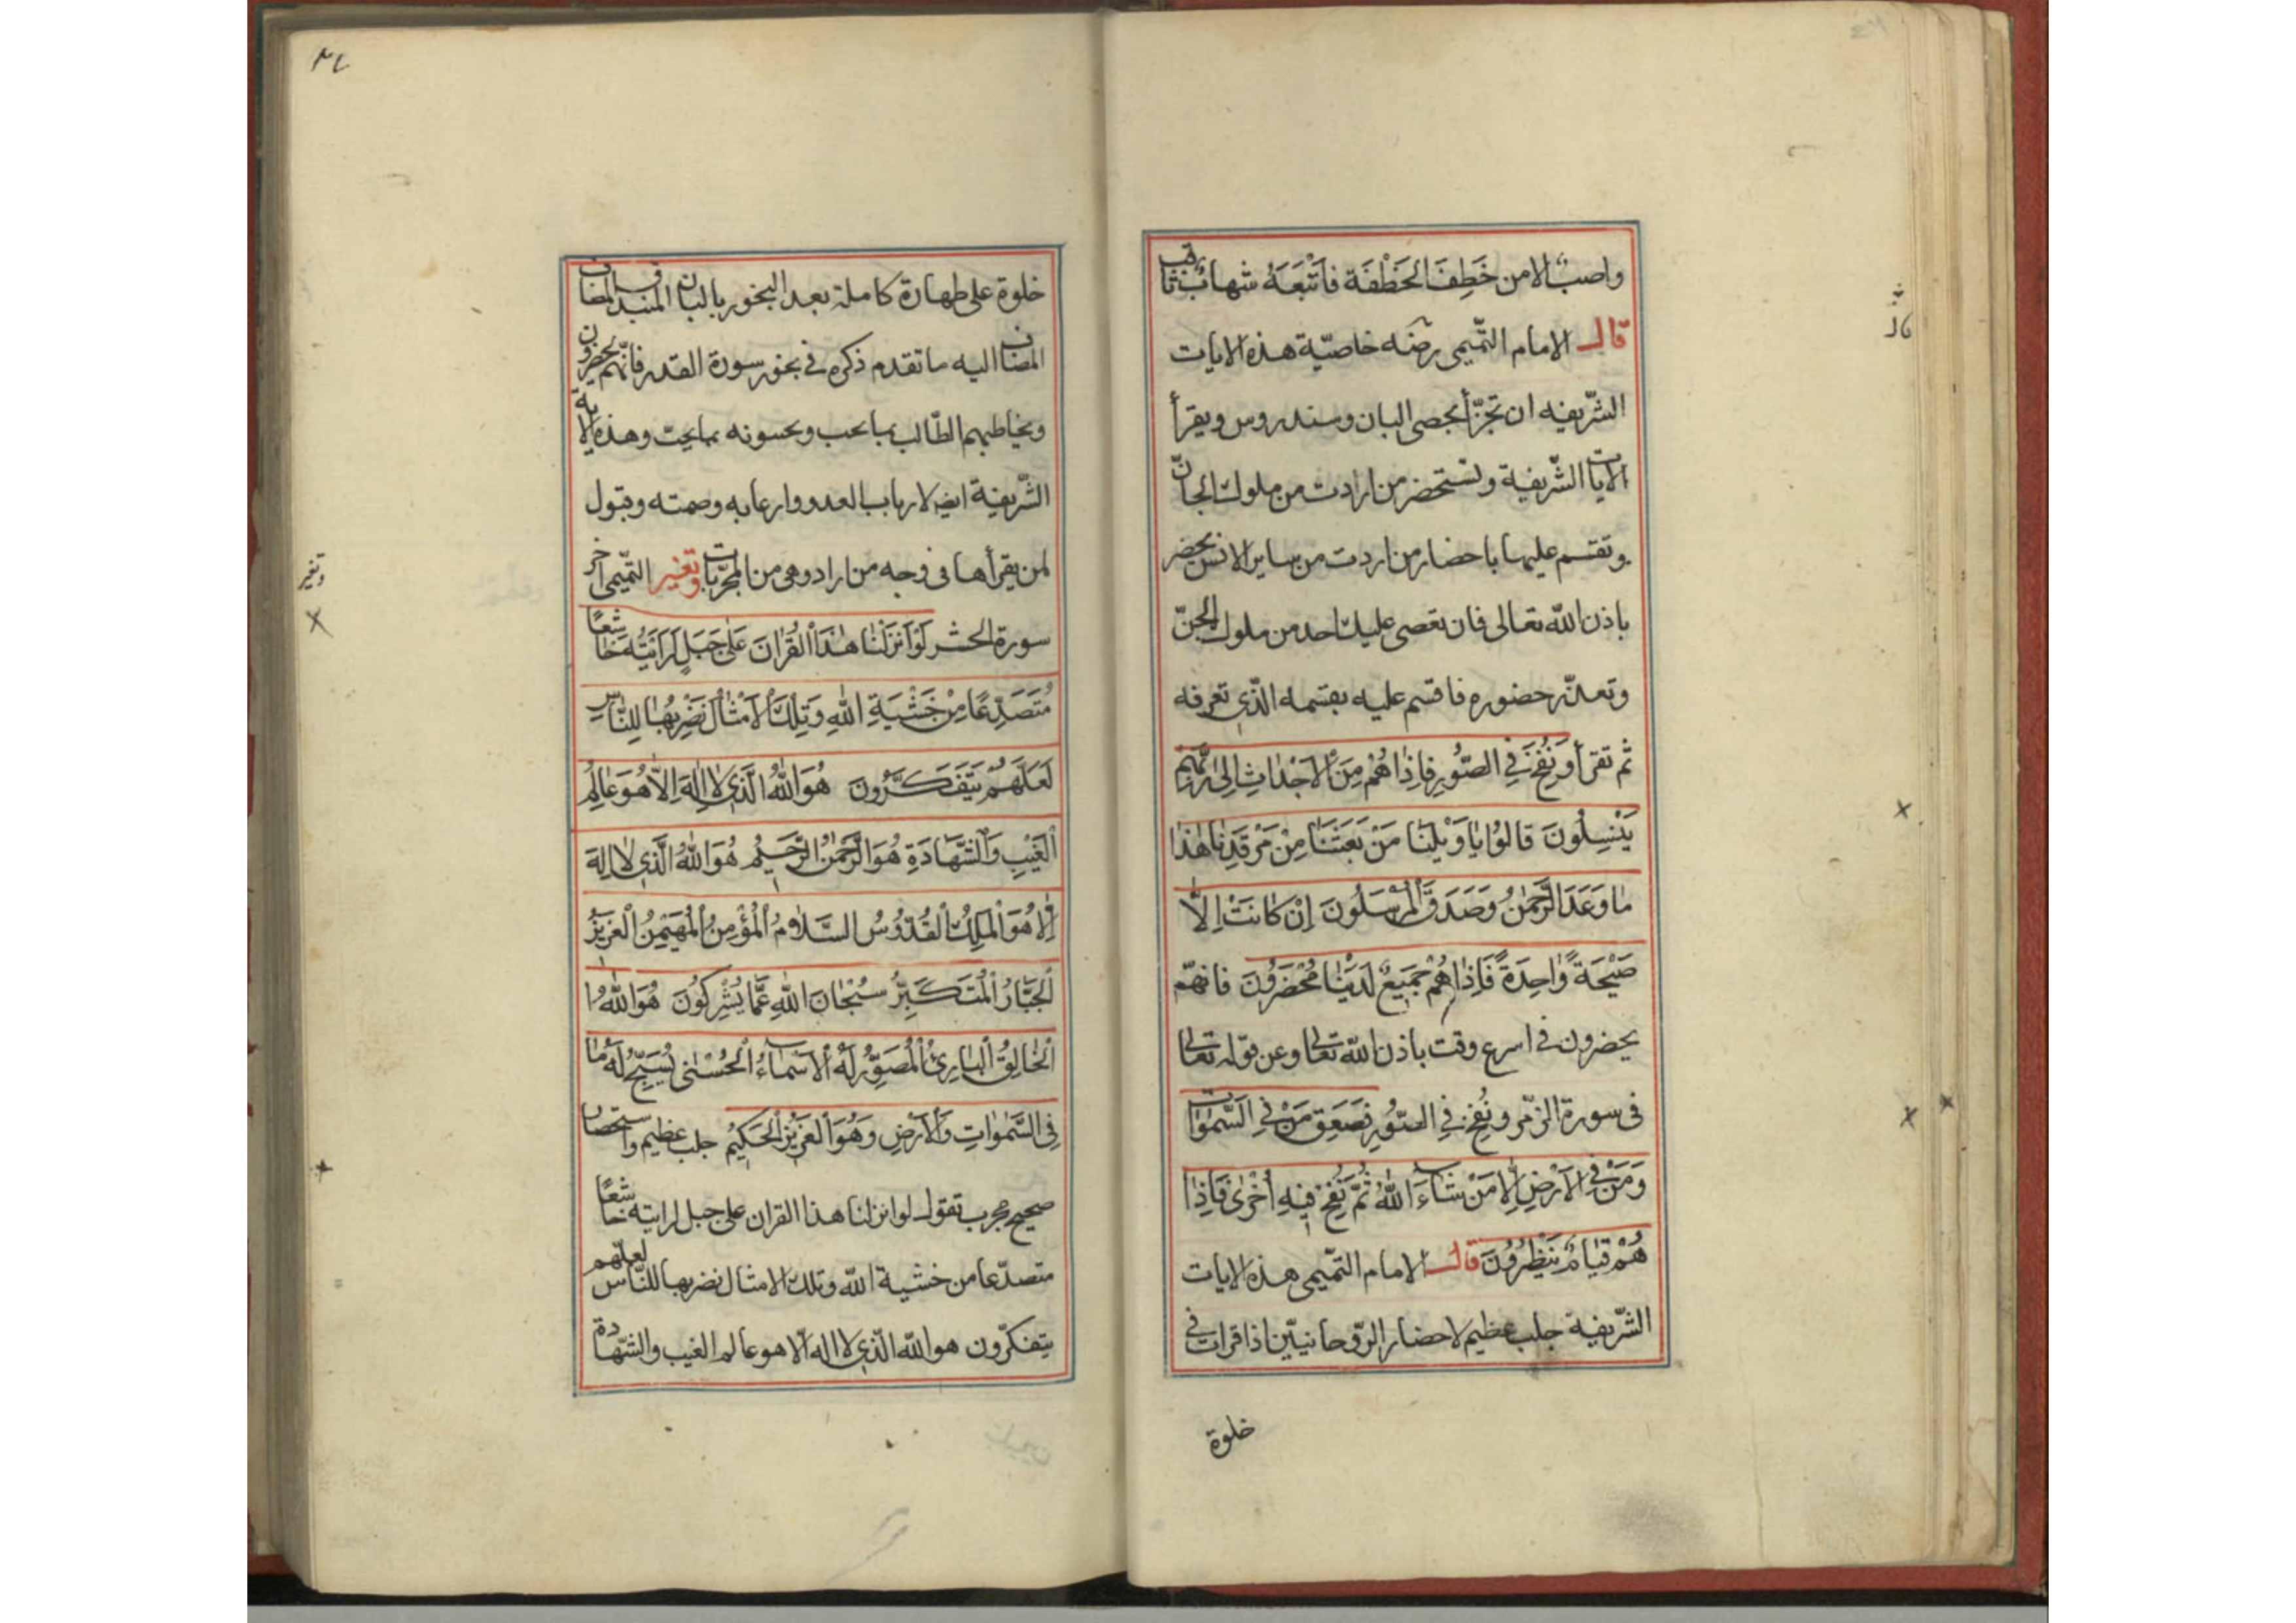 واصب الا من خَطِفَ الخَطْفَة فاَتْبَعَهُ شهابٌ ثاقب
قال الامام التّميمى رضه خاصيّة هذه الايات
الشّريفه ان تجزأ بحصى البان وسندروس ويقرأ
الايات الشّريفية وتستحضر من اردت من ملوك الجانّ
وتقسم عليها باحضار من اردت من ساير الانس يحضر
باذن الله تعالى فان تعصى عليك احد من ملوك الجنّ
وتعذّر حضوره فاقسم عليه بقسمه الذّى تعرفه
ثم تقرأ وَنُفِخَ فِي الصُّورِ فَاِذَا هُمْ مِنَ الْاَجْدَاثِ اِلىٰ رَبِّهِمْ
يَنْسِلُونَ قَالُوا يَا وَيْلَنَا مَنْ بَعَثَنَا مِنْ مَرْقَدِنَا هٰذَا
مَا وَعَدَ الرَّحْمٰنُ وَصَدَقَ الْمُرْسَلُونَ اِنْ كَانَتْ اِلاَّ
صَيْحَةً وَاحِدَةً فَاِذَا هُمْ جَمِيعٌ لَدَيْنَا مُحْضَرُونَ فانهّم
يحضرون فى اسرع وقت باذن الله تعالى وعن قوله تعالى
فى سورة الزّمر ونُفِخَ فِي الصُّورِ فَصَعِقَ مَنْ فِي السَّمٰوَاتِ
وَمَنْ فِي الْاَرْضِ اِلاَّ مَنْ شَاءَ اللهُ ثُمَّ نُفِخَ فِيهِ اُخْرٰى فَاِذَا
هُمْ قِيَامٌ يَنْظُرُونَ قال الامام التّميمى هذه الايات
الشّريفية جلب عظيم لاحضار الرّوحانيّين اذا قرات فى
خلوة
خلوة على طهارة كاملة بعد البخور باللبان المندل المضاف
المضاف اليه ما تقدم ذكره فى بخور سورة القدر فانّهم يحضرون
ويخاطبهم الطّالب بما يحب ويحسونه بما يحبّ وهذه الاية
الشّريفية ايضا لارهاب العدو وارعابه وصمته وقبول
لمن يقرأها فى وجه من اراد وهى من المجرّبات وتغير التّميمى اخر
سورة الحشر لَوْ اَنْزَلْنَا هٰذَا الْقُرْاٰنَ عَلىٰ جَبَلٍ لَرَاَيْتَهُ خَاشِعًا
مُتَصَدِّعًا مِنْ خَشْيَةِ اللهِ وَتِلْكَ الْاَمْثَالُ نَضْرِبُهَا لِلنَّاسِ
لَعَلَّهُمْ يَتَفَكَّرُونَ هُوَ اللهُ الَّذِي لَا اِلٰهَ اِلاَّ هُوَ عَالِمُ
الْغَيْبِ وَالشَّهَادَةِ هُوَ الرَّحْمٰنُ الرَّحِيمُ هُوَ اللهُ الَّذِي لَا اِلٰهَ
اِلاَّ هُوَ الْمَلِكُ الْقُدُّوسُ السَّلَامُ الْمُؤْمِنُ الْمُهَيْمِنُ الْعَزِيزُ
الْجَبَّارُ الْمُتَكَبِّرُ سُبْحَانَ اللهِ عَمَّا يُشْرِكُونَ هُوَ اللهُ
الْخَالِقُ الْبَارِئُ الْمُصَوِّرُ لَهُ الْاَسْمَاءُ الْحُسْنٰى يُسَبِّحُ لَهُ مَا
فِي السَّمٰوَاتِ وَالْاَرْضِ وَهُوَ الْعَزِيزُ الْحَكِيمُ جلب عظيم واستحضار
صحيح مجرب تقول لو انزلنا هذا القران على جبل لرايته خاشعًا
متصدّعا من خشية الله وتلك الامثال نضربها للنّاس لعلّهم
يتفكرّون هو الله الذّى لا اله الّا هو عالم الغيب والشّهادة
وتغير